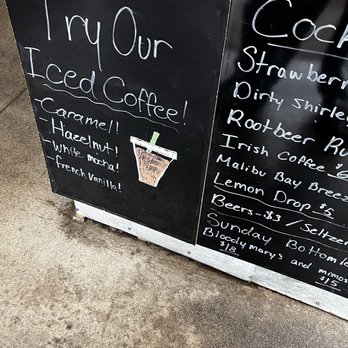 Try Our
Iced Coffee!
-Caramel!
-Hazelnut!
-White mocha!
-French Vanilla!
Strawberry
Dirty Shirley
Rootbeer
Irish Coffee $6
Malibu Bay Breeze
Lemon Drop $5
Beers-$3/Seltzer
Sunday Bottomless
Bloody mary's and mimosas
$18 $15